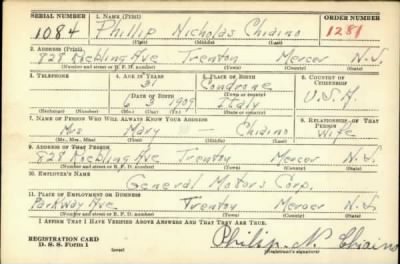 SERIAL NUMBER 1. NAME (Print) ORDER NUMBER
1084 Phillip Nicholas Chidino 1281
(First) (Middle) (Last)
2. ADDRESS (Print)
828 Roebling Ave Trenton Mercer N.J.
(Number and street or R. F. D. number) (Town) (County) (State)
3. TELEPHONE 4. AGE IN YEARS 5. PLACE OF BIRTH 6. COUNTRY OF CITIZENSHIP
31 Condrone
DATE OF BIRTH (Town or county)
6 3 1909 Italy U.S.A.
(Exchange) (Number) (Mo.) (Day) (Yr.) (State or country)
7. NAME OF PERSON WHO WILL ALWAYS KNOW YOUR ADDRESS 8. RELATIONSHIP OF THAT PERSON
Mrs Mary — Chidino Wife
(Mr., Mrs., Miss) (First) (Middle) (Last)
9. ADDRESS OF THAT PERSON
828 Roebling Ave Trenton Mercer N.J.
(Number and street or R. F. D. number) (Town) (County) (State)
10. EMPLOYER'S NAME
General Motors Corp.
11. PLACE OF EMPLOYMENT OR BUSINESS
Parkway Ave Trenton Mercer N.J.
(Number and street or R. F. D. number) (Town) (County) (State)
I AFFIRM THAT I HAVE VERIFIED ABOVE ANSWERS AND THAT THEY ARE TRUE.
REGISTRATION CARD
D. S. S. Form 1 (over) Philip N. (Registrant's signature)